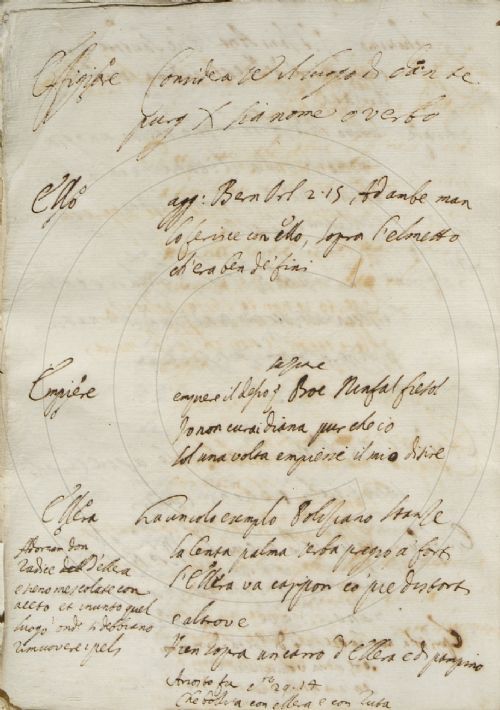 Effigiare Considera se il luogo di Dan te
purg X sia nome o verbo
Ello agg: Bern Orl 2.15 Ad ambe man
lo ferisce con ello, sopra l'elmetto
ch'era ben de' fini
saziare
Empiere empiere il desio Boc Ninfal fiesol
Io non curai diana pur che io
sol una volta empiessi il mio disire
Ellera ha un solo esempio Poliziano Stanze
la lenta palma serba pregio a' forti
l'Ellera va carpon co' pie distorti
e altrove
Vien sopra un carro d'ellera e di pampino
Ariosto fu 29.14
Che bolliva con ellera e con ruta
radice d'ellera
e sieno mescolate con
aceto et inunto quel
luogo onde si debbiano
rimuovere i peli